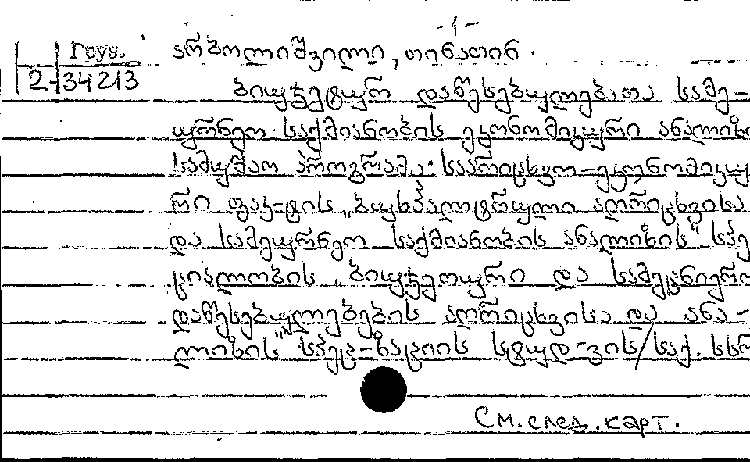 -1-
Груз.
2-34213
არბოლიშვილი, თინათინ.
ბიუჯეტურ დაწესებულებათა სამე-
ურნეო საქმიანობის ეკონომიკური ანალიზი
სამუშაო პროგრამა: საარიცხვო-ეკონომიკუ
რი ფაკ-ტის „ბუხჰალტრული აღრიცხვისა
და სამეურნეო საქმიანობის ანალიზის" სპე
ციალობის „ბიუჯეტური და სამეცნიერო
დაწესებულებების აღრიცხვისა და ანა-
ლიზის" სპეც-ზაციის სტუდ-ვის/საქ. სსრ
См. след. карт.